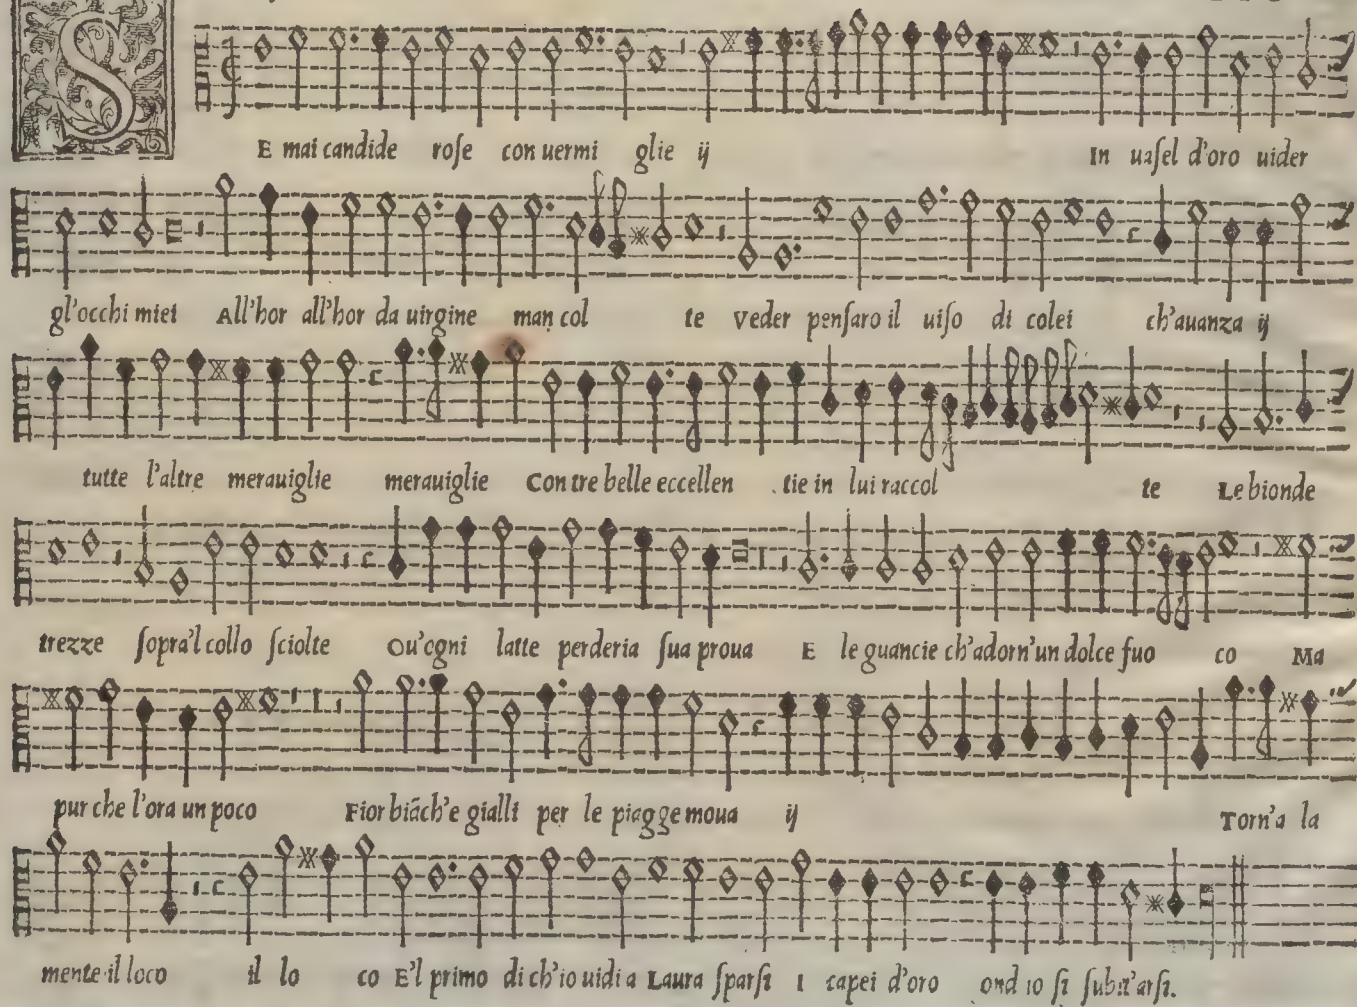 SE mai candide rose con uermi glie ij In uasel d'oro uider
gl'occhi miei All'hor all'hor da uirgine man col te Veder pensaro il uiso di colei ch'auanza ij
tutte l'altre merauiglie merauiglie Con tre belle eccellen tie in lui raccol te Le bionde
trezze sopra'l collo sciolte Ou'ogni latte perderia sua proua E le guancie ch'adorn'un dolce fuo co Ma
pur che l'ora un poco Fior biãch'e gialli per le piagge moua ij Torn'a la
mente il loco il lo co E'l primo di ch'io uidi a Laura sparsi I capei d'oro ond io si subit'arsi.